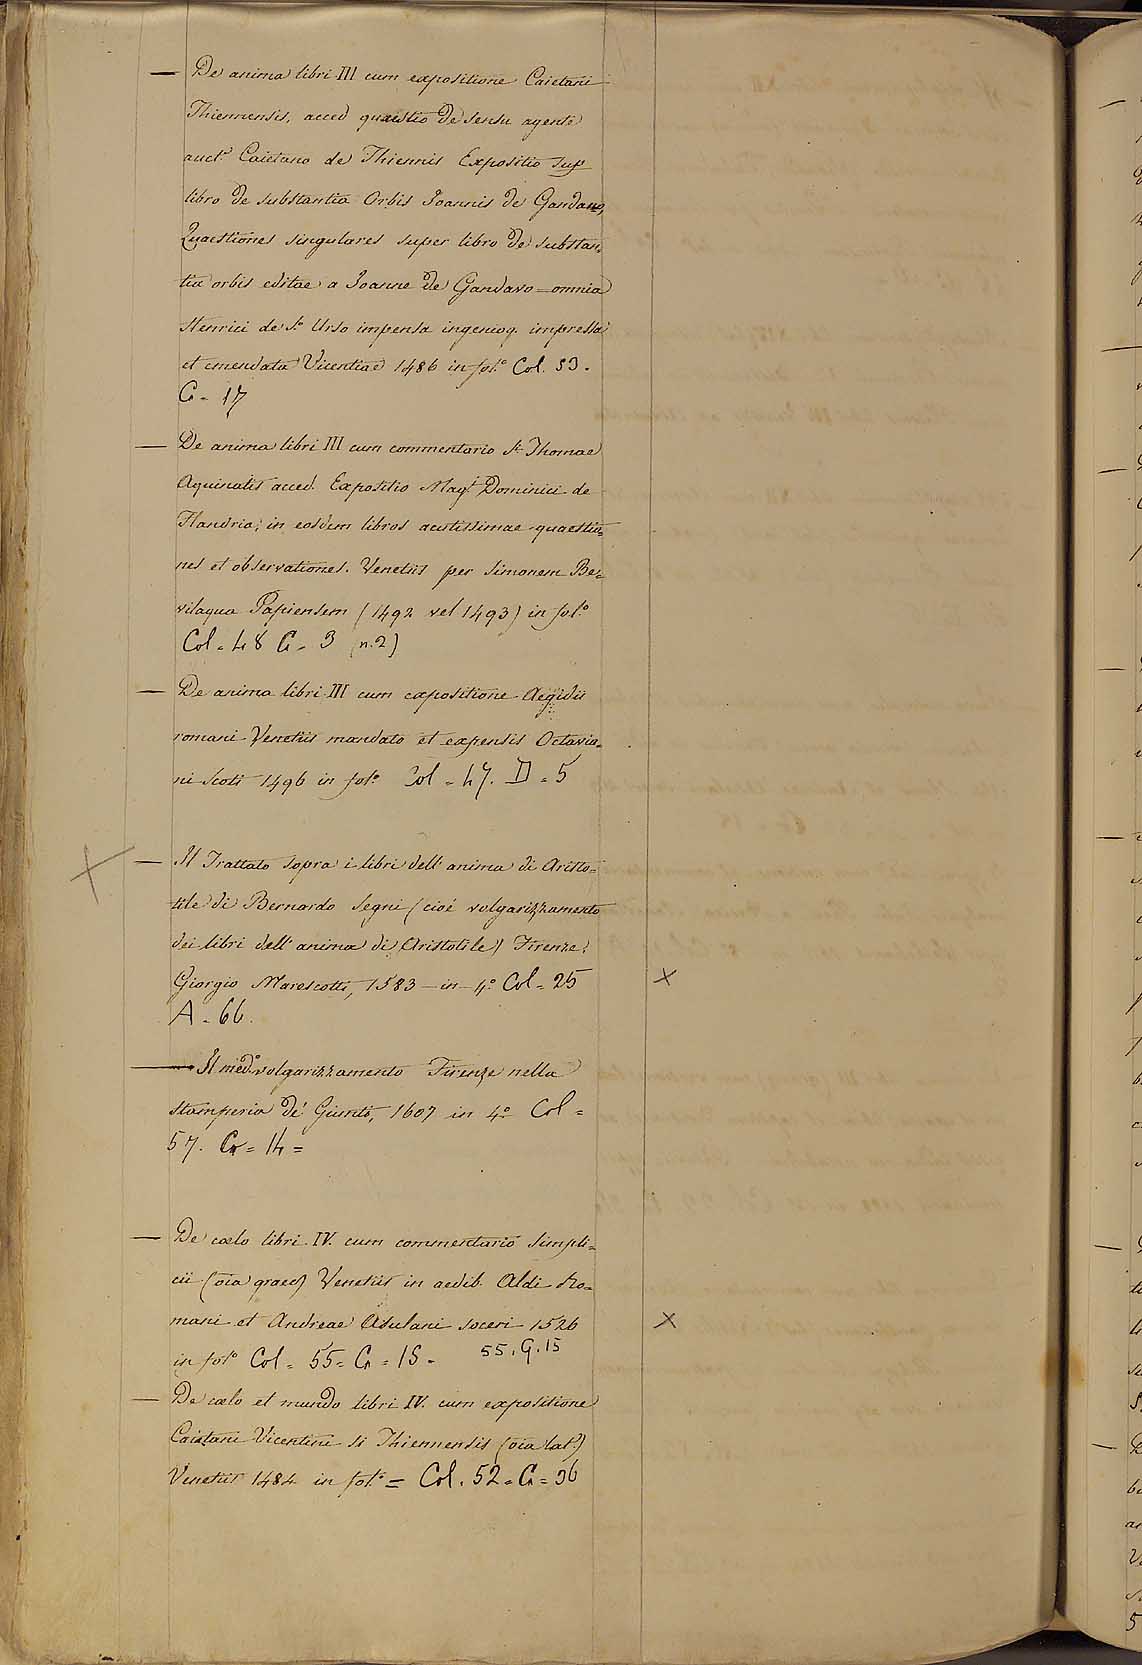 — De anima libri III cum expositione Caietani
Thiennensis, acced quaestio de sensu agente
auct.e Caietano de Thiennis Expositio sup
libro de substantia Orbis Joannis de Gandavo,
Quaestiones singulares super libro de substan=
tia orbis editae a Joanne de Gandavo = omnia
Henrici de S.o Urso impensa ingenioq. impressa
et emendata Vicentiae 1486 in fol.o Col. 53.
G = 17
— De anima libri III cum commentario S.ti Thomae
Aquinatis acced. Expositio Mag.i Dominici de
Flandria; in eosdem libros acutissimae quaestio=
nes et observationes. Venetiis per Simonem Be=
vilaqua Papiensem (1492 vel 1493) in fol.o
Col = 48 G = 3 (n.2)
— De anima libri III cum expositione Aegidii
romani Venetiis mandato et expensis Octavia=
ni Scoti 1496 in fol.o Col = 47. D = 5
— Il Trattato sopra i libri dell'anima di Aristo=
tile di Bernardo Segni (cioé volgarizzamento
dei libri dell'anima di Aristotile) Firenze
Giorgio Marescotti, 1583 in 4.o Col = 25
A = 66.
— Il med.o volgarizzamento Firenze nella
stamperia dé Giunti, 1607 in 4.o Col =
57. G = 14 =
— De cœlo libri IV. cum commentario Simpli=
cii (oia graece) Venetiis in aedib. Aldi Ro=
mani et Andreae Asulani soceri 1526
in fol.o Col = 55 = G = 15. 55. G. 15
— De cœlo et mundo libri IV. cum expositione
Caietani Vicentini Thiennensis (oia lat.)
Venetiis 1484 in fol.o = Col. 52 = G = 36